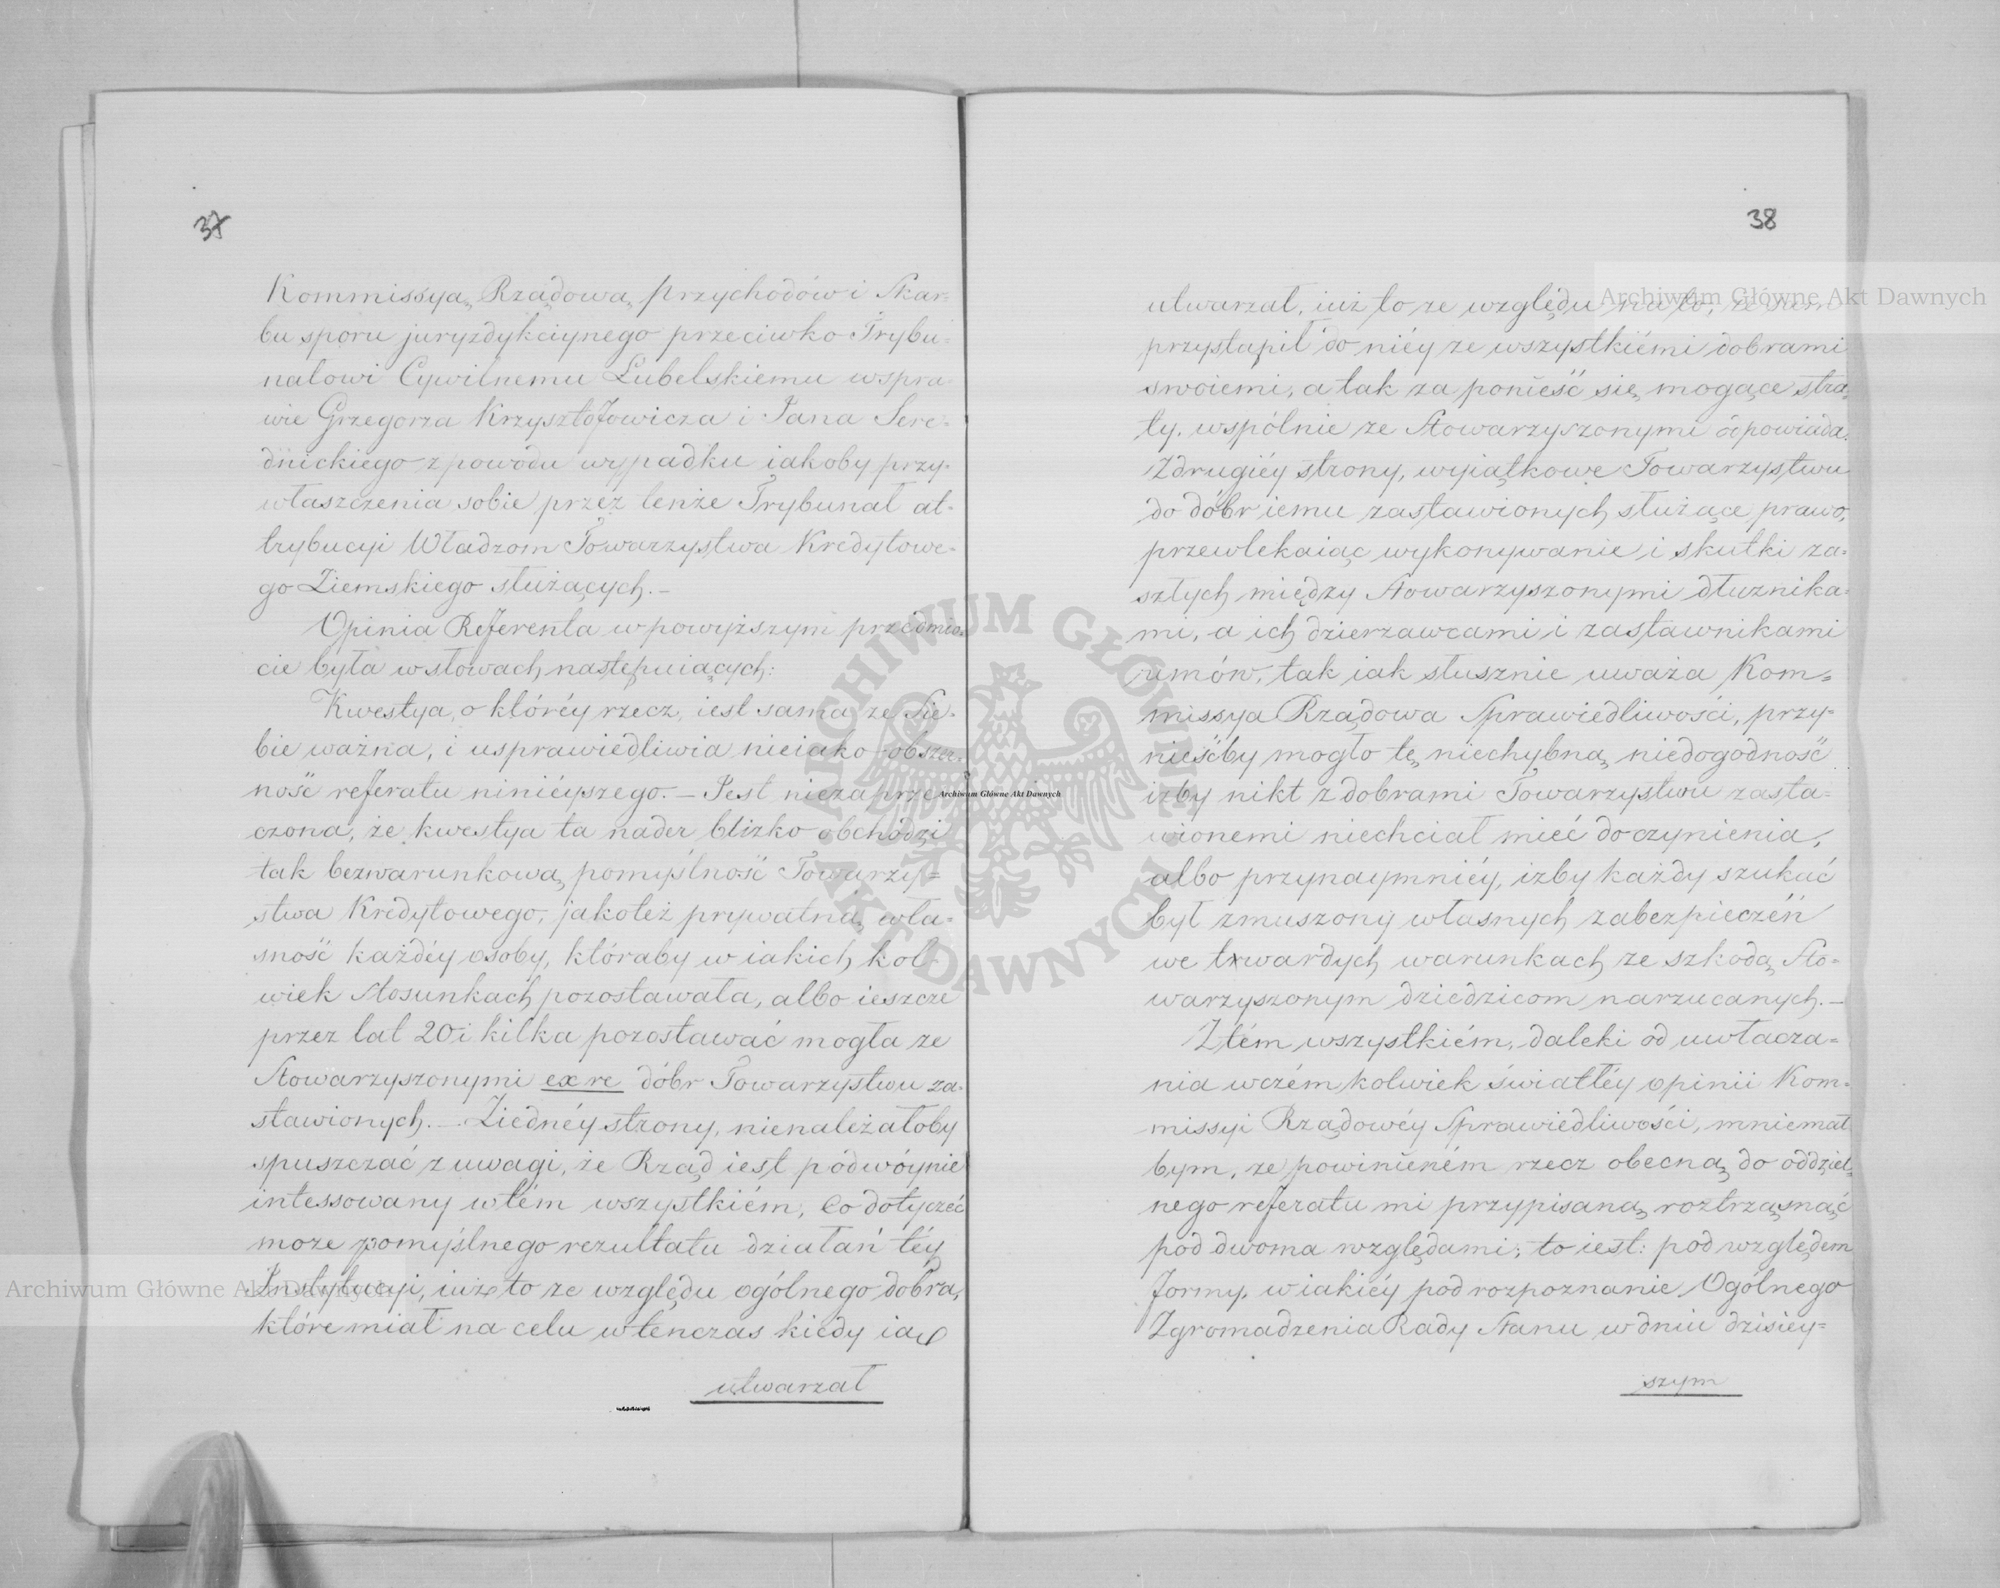 37
Kommissya Rządowa Przychodów i Skar-
bu sporu juryzdykciynego przeciwko Trybu-
nałowi Cywilnemu Lubelskiemu w spra-
wie Grzegorza Krzysztofowicza i Jana Sere-
dnickiego z powodu wypadku iakoby przy-
właszczenia sobie przez tenże Trybunał at-
trybucyi Władzom Towarzystwa Kredytowe-
go Ziemskiego służących. —
Opinia Referenta w powyższym przedmio-
cie była w słowach następuiących:
Kwestya, o któréy rzecz, iest sama ze Sie-
bie ważna, i usprawiedliwia nieiako obszer-
ność referatu niniéyszego. — Jest nieza prze-
czona, że kwestya ta nader blizko obchodzi
tak bezwarunkową pomyślność Towarzy-
stwa Kredytowego, jakoteż prywatną wła-
sność każdéy osoby, któraby w iakich kol-
wiek Stosunkach pozostawała, albo ieszcze
przez lat 20 i kilka pozostawać mogła ze
Stowarzyszonymi ex re dóbr Towarzystwu za-
stawionych. — Ziednéy strony, nienależałoby
spuszczać z uwagi, że Rząd iest pódwóynie
intessowany w tém wszystkiém, Co dotyczéć
może pomyślnego rezultatu działań téy
Instytucyi, iuż to ze względu ogólnego dobra,
które miał na celu wtenczas kiedy ią
utwarzał
38
utwarzał, iuż to ze względu na to, że sam
przystąpił do niéy ze wszystkiémi dobrami
swoiemi, a tak za ponieść się mogące stra-
ty, wspólnie ze Stowarzyszonymi odpowiada.
Z drugiéy strony, wyiątkowe Towarzystwu
do dóbr iemu zastawionych służące prawo,
przewlekaiąc wykonywanie i skutki za-
szłych między Stowarzyszonymi dłużnika-
mi, a ich dzierzawcami i zastawnikami
umów, tak iak słusznie uważa Kom-
missya Rządowa Sprawiedliwości, przy-
nieśćby mogło tę niechybną niedogodność
iżby nikt z dobrami Towarzystwu zasta-
wionemi niechciał mieć do czynienia,
albo przynaymniéy, iżby każdy szukać
był zmuszony własnych zabezpieczeń
we twardych warunkach ze szkodą Sto-
warzyszonym dziedzicom narzucanych. —
Z tém wszystkiém, daleki od uwłacza-
nia wczém kolwiek światłéy opinii Kom-
missyi Rządowéy Sprawiedliwości, mniemał
bym, że powinieném rzecz obecną do oddziel-
nego referatu mi przypisaną, roztrząsnąć
pod dwoma względami; to iest: pod względem
formy, w iakiéy pod rozpoznanie Ogólnego
Zgromadzenia Rady Stanu w dniu dzisiéy-
szym
Archiwum Główne Akt Dawnych
Archiwum Główne Akt Dawnych
Archiwum Główne Akt Dawnych
ARCHIWUM GŁÓWNE AKT DAWNYCH